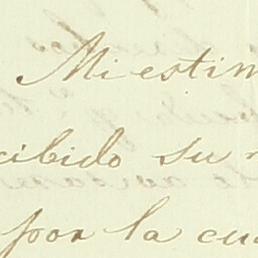 Mi estim
cibido su
por la cu